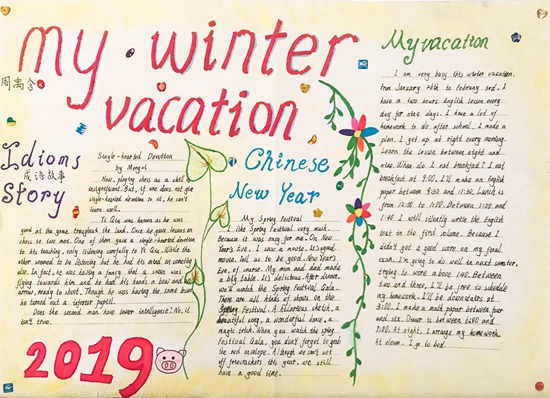 my winter
vacation
周禹含
Idioms
成语故事
Story
Single-hearted Devotion
by Mengzi
Now, playing chess as a skill is
insignificant. But, if one does not give
single-hearted devotion to it, he can't
learn well.
Yi Qiu was known as he was
good at the game throughout the land. Once he gave lessons on
chess to two men. One of them gave a single-hearted devotion
to his teaching, only listening carefully to Yi Qiu. While the
other seemed to be listening but he had his mind on something
else. In fact, he was having a fancy that a swan was
flying towards him and he had his hands a bow and
arrow, ready to shoot. Though he was having the same
he turned out a inferior pupil.
Does the second man have lower intelligence? No. It
isn't true.
2019
Chinese
New Year
My Spring Festival
I like Spring Festival very much.
Because it was easy for me. On New
Year's Eve, I saw a movie. It's good
movie. Tell us to be good. New Year's
Eve, of course. My mum and dad made
a big table. It's delicious. After dinner,
we'll watch the Spring Festival Gala.
There are all kinds of shows on the
Spring Festival. A hilarious sketch, a
beautiful song, a wonderful dance, a
magic trick. When you watch the Spring
Festival Gala, you don't forget to grab
the red envelope. Although we can't set
off firecrackers this year. we still
have a good time.
My vacation
I am very busy this winter vacation.
from January 28th to February 3rd. I
have a two hours English lesson every
day for days. I have a lot of
homework to do after school. I made a
plan. I get up at eight every morning.
Learn the lesson between eight and
nine. When do I eat breakfast? I eat
breakfast at 9:00. I'll make an English
paper between 9:30 and 11:30. Lunch is
from 12:00 to 1:00. Between 1:00 and
1:40 I will silently write the English
text in the first volume. Because I
didn't get a good score on my final
exam. I'm going to do well in next semster,
trying to score above 90. Between
two and three, I'll be free to schedule
my homework. I'll be downstairs at
3:00. I make a math paper between four
and six. Dinner is between 6:00 and
7:00. At night, I arrange my homework.
At eleven. I go to bed.